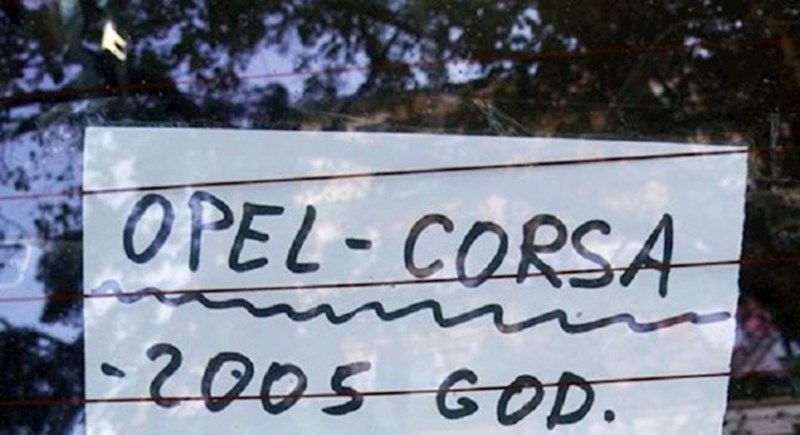 OPEL - CORSA
- 2005 GOD.